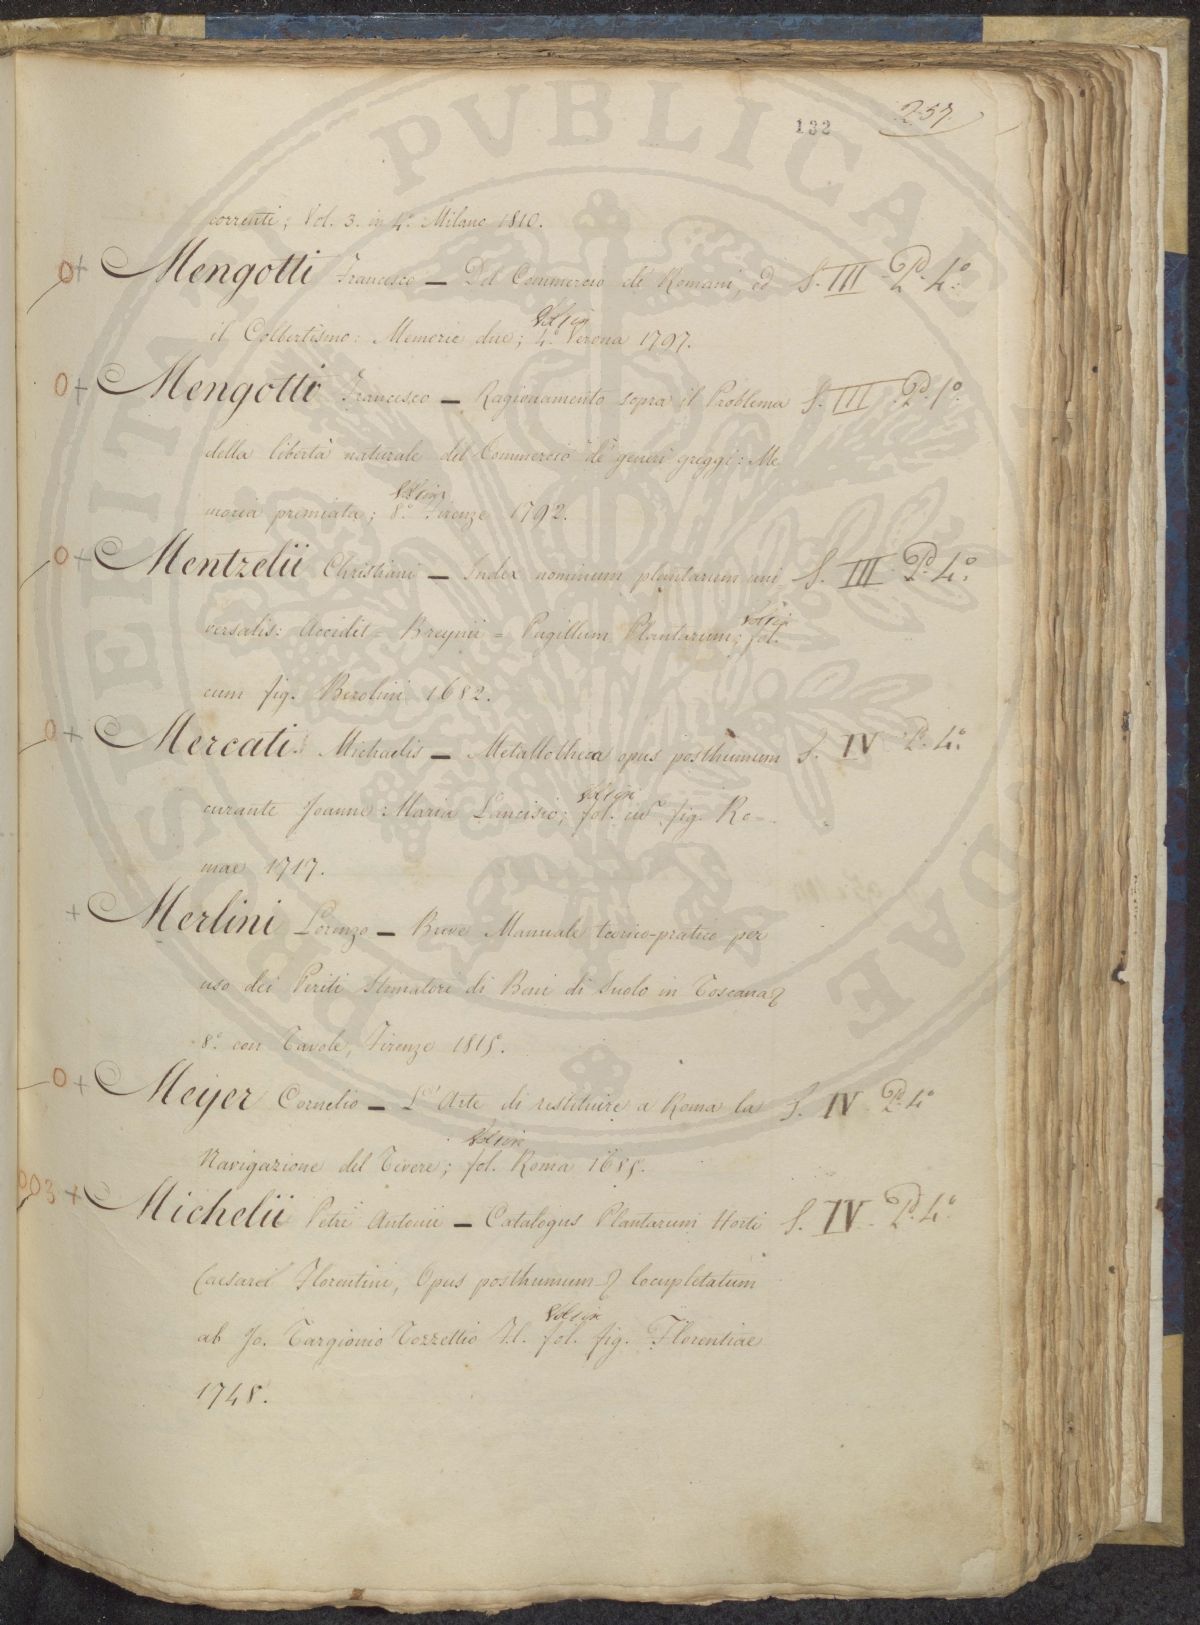 PROSPERITATI PVBLICAE AVGENDAE
132
257
correnti; Vol. 3. in 4.º Milano 1810.
0+ Mengotti Francesco — Del Commercio de' Romani, ed S. III P. 4.º
Vol. in
il Colbertismo: Memorie due; 4.º Verona 1797.
0+ Mengotti Francesco — Ragionamento sopra il Problema S. III P. 1.º
della libertà naturale del Commercio de' generi greggi: Me
Vol. in
moria premiata; 8.º Firenze 1792.
0+ Mentzelii Christiani — Index nominum plantarum uni S. III P. 4.º
Vol. in
versalis: Accidit = Breynii = Pugillum Plantarum; fol.
cum fig. Berolini 1682.
0+ Mercati Michaelis — Metallotheca opus posthumum S. IV P. 4.º
Vol. in
curante Joanne: Maria Lancisio; fol. cu fig. Ro-
mae 1717.
+ Merlini Lorenzo — Breve Manuale teorico-pratico per
uso dei Periti Stimatori di Beni di Suolo in Toscana
8.º con Tavole, Firenze 1815.
0+ Meijer Cornelio — L'Arte di restituire a Roma la S. IV P. 4.º
Vol. in
Navigazione del Tevere; fol. Roma 1685.
003 + Michelii Petri Antonii — Catalogus Plantarum Horti S. IV P. 4.º
Caesarei Florentini, Opus posthumum locupletatum
Vol. in
ab Jo. Targionio Tozzettio fol. fig. Florentiae
1748.